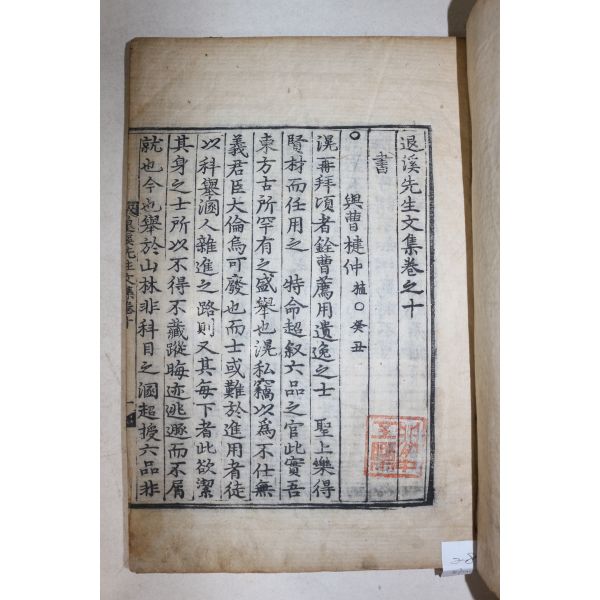 退溪先生文集卷之十
書
與曺楗仲 植○癸丑
滉再拜頃者銓曹薦用遺逸之士 聖上樂得
賢材而任用之 特命超叙六品之官此實吾
東方古所罕有之盛擧也滉私竊以爲不仕無
義君臣大倫烏可廢也而士或難於進用者徒
以科擧溷人雜進之路則又其每下者此欲潔
其身之士所以不得不藏蹤晦迹逃遯而不屑
就也今也擧於山林非科目之溷超授六品非
退溪先生文集卷十
一